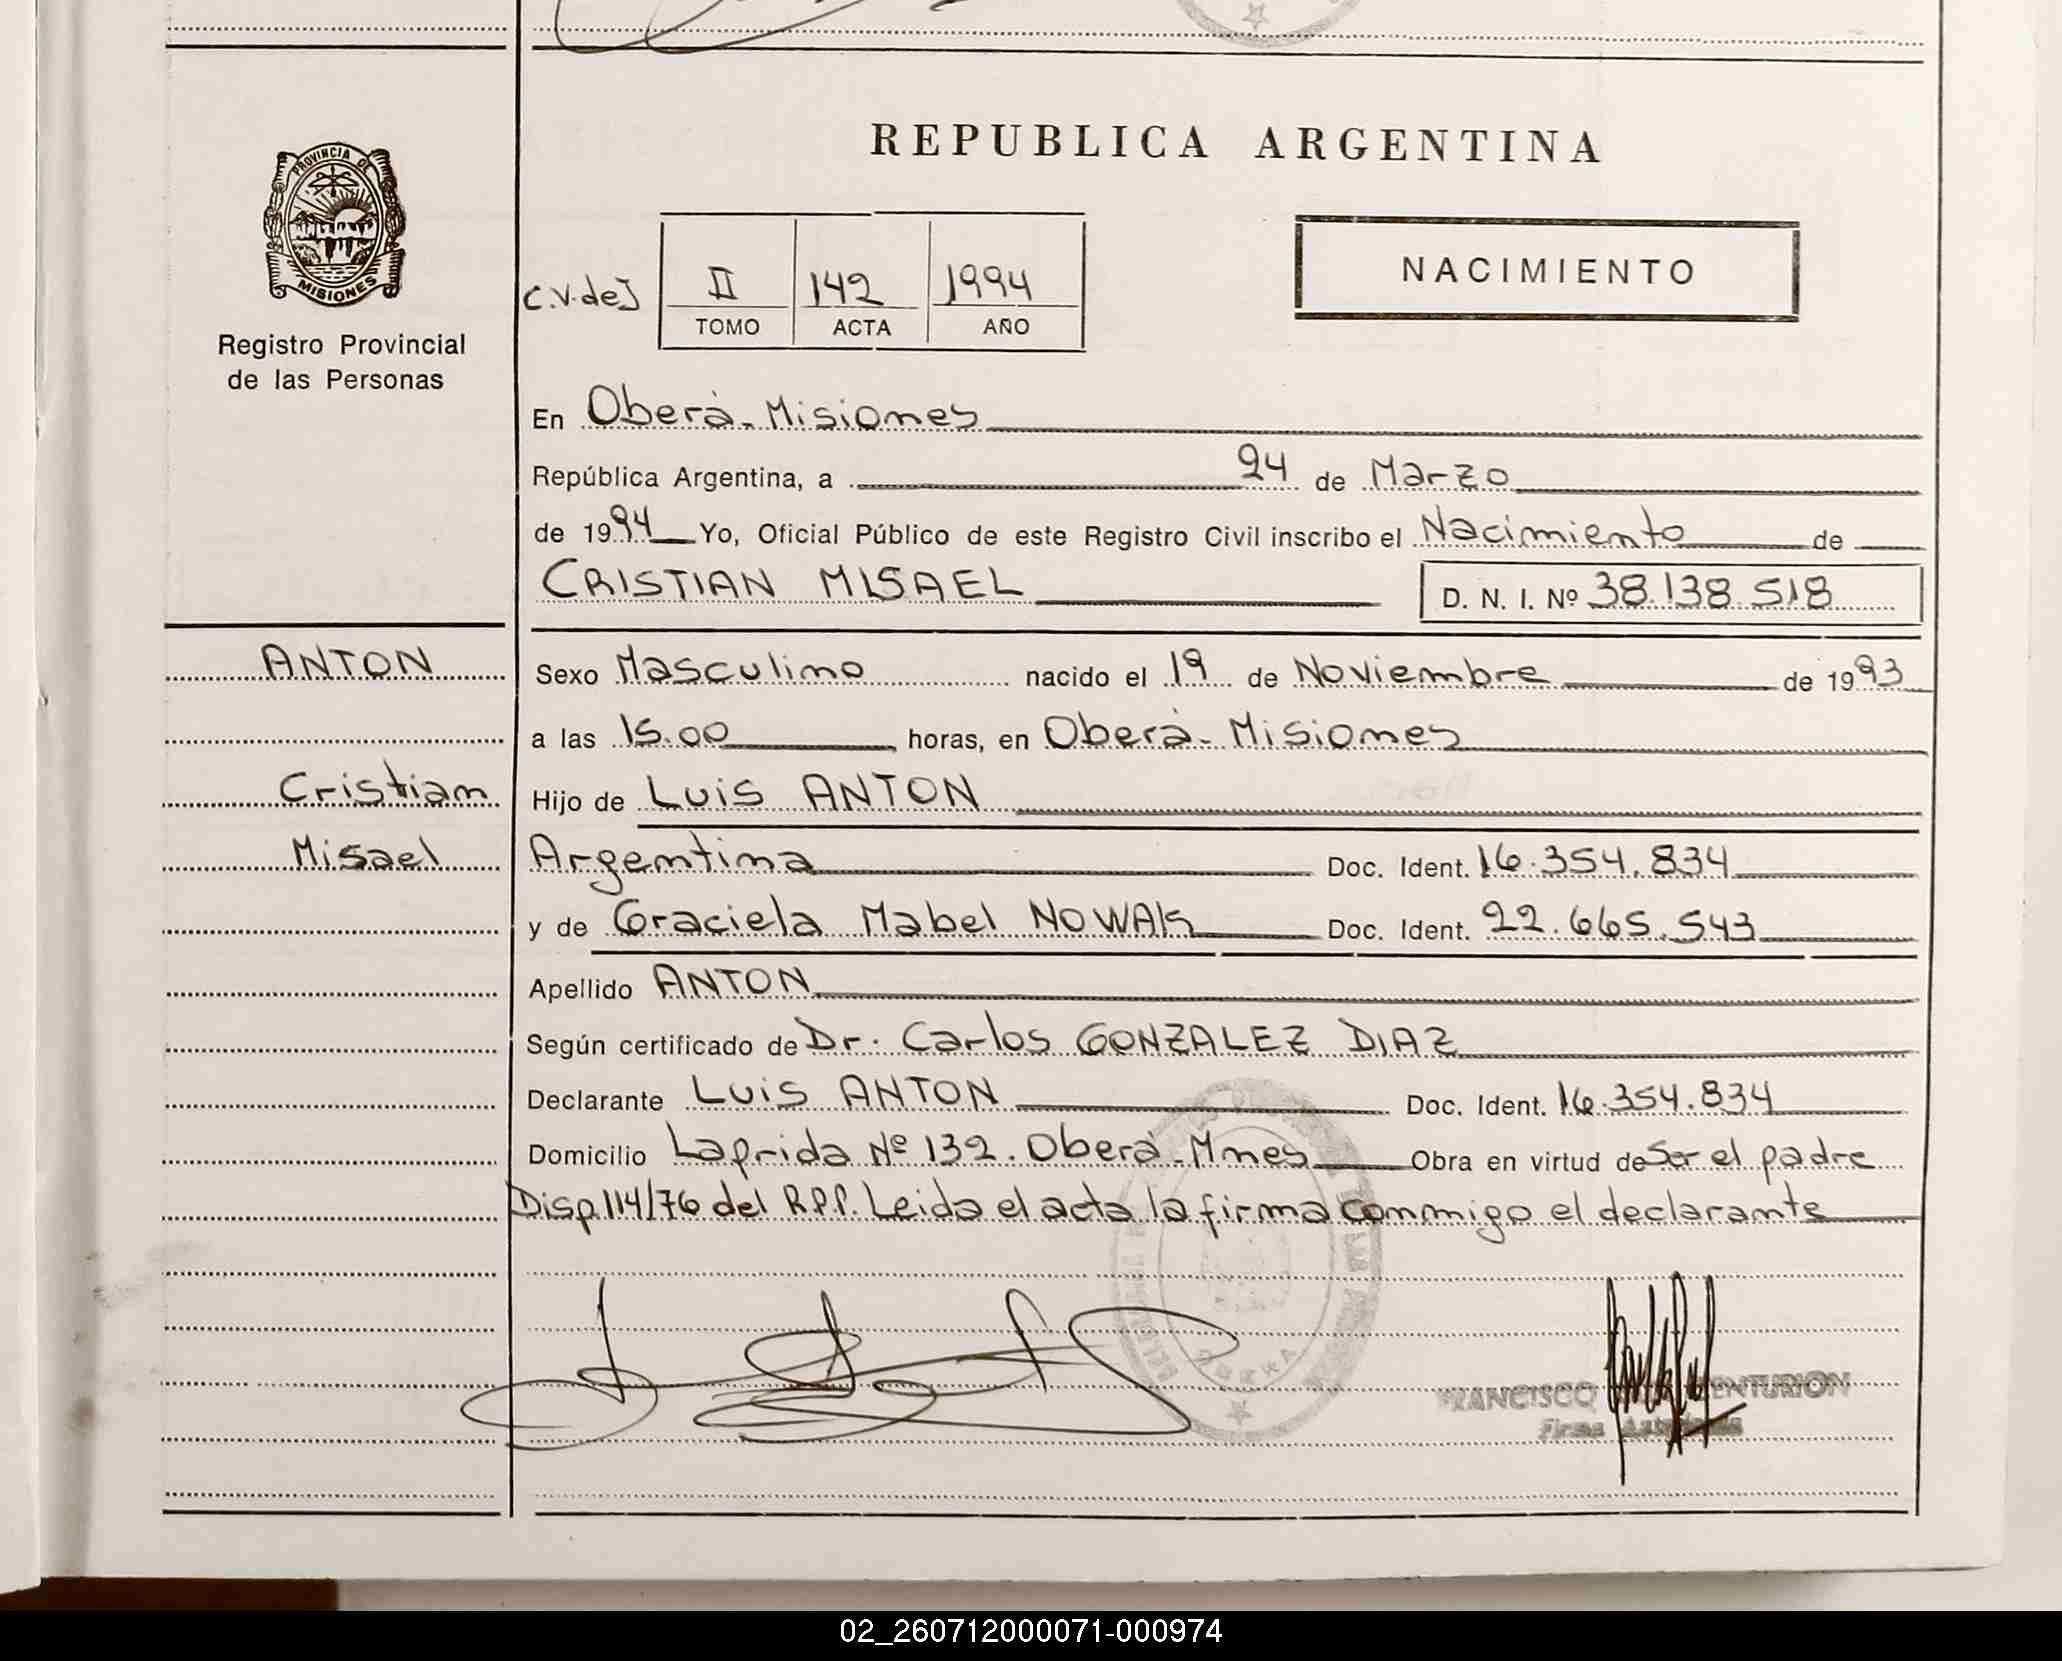 PROVINCIA DE
MISIONES
Registro Provincial
de las Personas
REPUBLICA ARGENTINA
C.V.deJ
II 142 1994
TOMO ACTA AÑO
NACIMIENTO
En Oberá-Misiones
República Argentina, a 24 de Marzo
de 1994 Yo, Oficial Público de este Registro Civil inscribo el Nacimiento de
CRISTIAN MISAEL D. N. I. Nº 38.138.518
ANTON
Cristian
Misael
Sexo Masculino nacido el 19 de Noviembre de 1993
a las 15.00 horas, en Oberá-Misiones
Hijo de Luis ANTON
Argentina Doc. Ident. 16.354.834
y de Graciela Mabel NOWAK Doc. Ident. 22.665.543
Apellido ANTON
Según certificado de Dr. Carlos GONZALEZ DIAZ
Declarante Luis ANTON Doc. Ident. 16.354.834
Domicilio Laprida Nº 132. Oberá-Mnes Obra en virtud de Ser el padre
Disp 114/76 del R.P.P. Leida el acta la firma conmigo el declarante
FRANCISCO
Firma
02_260712000071-000974